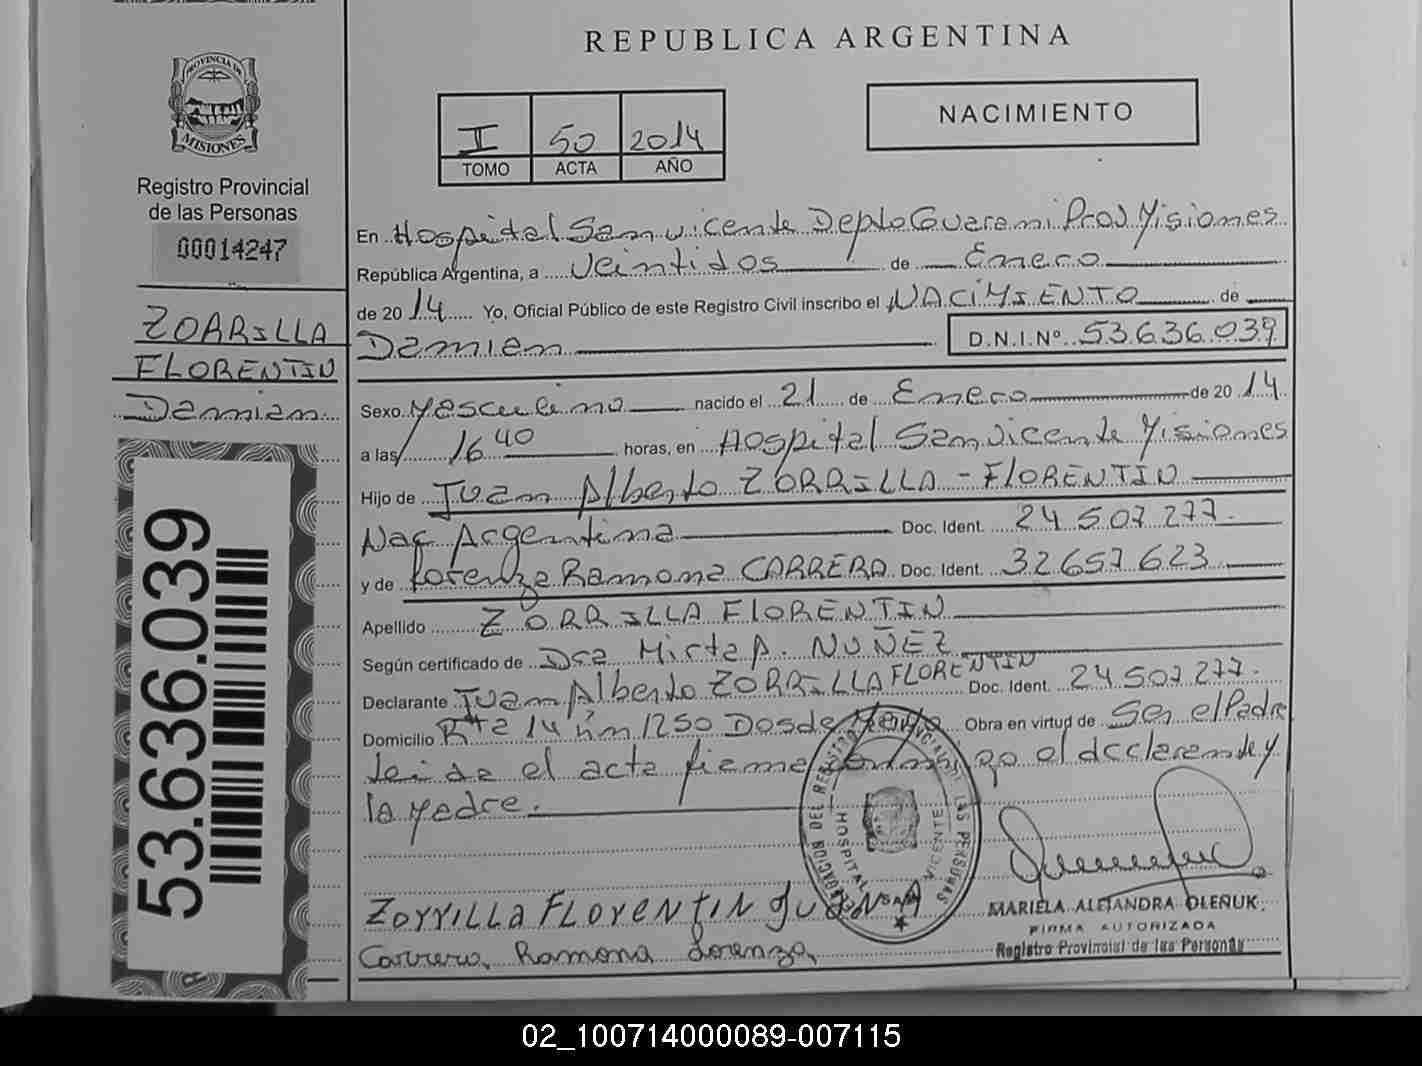 REPUBLICA ARGENTINA
PROVINCIA DE
MISIONES
Registro Provincial
de las Personas
00014247
ZORRILLA
FLORENTIN
Damian
53.636.039
I 50 2014
TOMO ACTA AÑO
NACIMIENTO
En Hospital San vicente Depto Guarani Prov Misiones
República Argentina, a veintidos de Enero
de 2014. Yo, Oficial Público de este Registro Civil inscribo el NACIMIENTO de
Damian D.N.I.Nº 53.636.039
Sexo Masculino nacido el 21 de Enero de 2014
a las 16 40 horas, en Hospital San vicente Misiones
Hijo de Juan Alberto ZORRILLA - FLORENTIN
Nac Argentina Doc. Ident. 24 507 277.
y de Lorenza Ramona CARRERA Doc. Ident. 32 657 623
Apellido ZORRILLA FLORENTIN
Según certificado de Dra Mirta A. NUÑEZ
Declarante Juan Alberto ZORRILLA FLORENTIN Doc. Ident. 24 507 277.
Domicilio Rta 14 Km 1250 Dosde Mayo Obra en virtud de Ser el Padre
leida el acta firma conmigo el declarante y
la Madre.
REGISTRO PROVINCIAL DE LAS PERSONAS
HOSPITAL SAN VICENTE
ZORRILLA FLORENTIN JUAN A
Carrera, Ramona Lorenza,
MARIELA ALEJANDRA OLEÑUK
FIRMA AUTORIZADA
Registro Provincial de las Personas
02_100714000089-007115